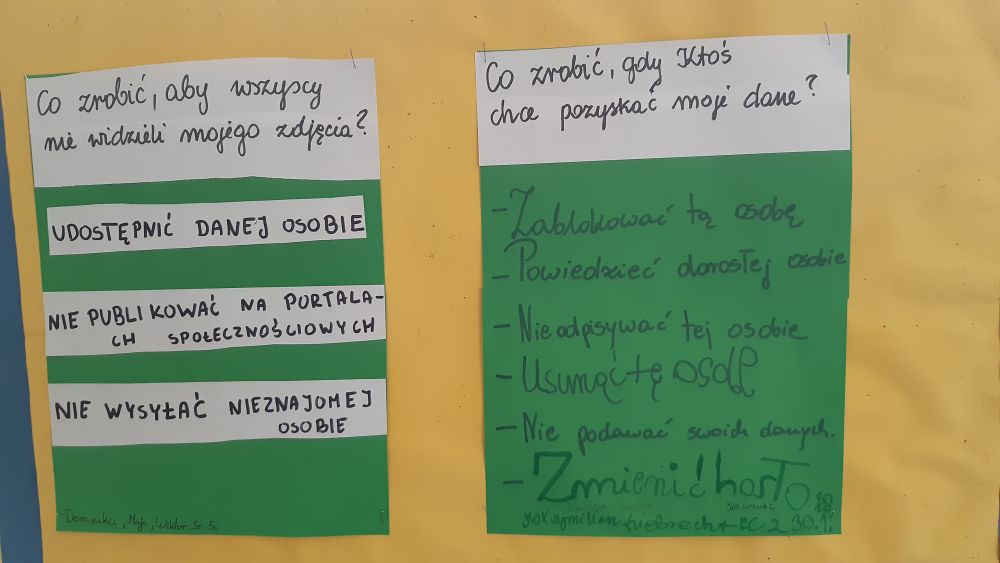 Co zrobić, aby wszyscy
nie widzieli mojego zdjęcia?
UDOSTĘPNIĆ DANEJ OSOBIE
NIE PUBLIKOWAĆ NA PORTALA-
CH SPOŁECZNOŚCIOWYCH
NIE WYSYŁAĆ NIEZNAJOMEJ
OSOBIE
Dominika, Maja, Wiktor Sz. 5c
Co zrobić, gdy Ktoś
chce pozyskać moje dane?
- Zablokować tą osobę
- Powiedzieć dorosłej osobie
- Nie odpisywać tej osobie
- Usunąć tę osobę
- Nie podawać swoich danych.
- Zmienić hasło